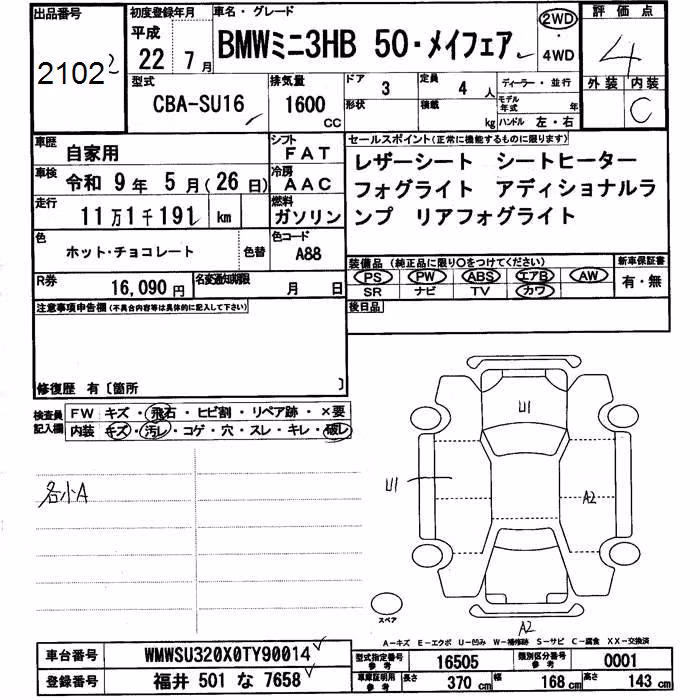 出品番号
2102
初度登録年月
平成
22 7月
車名・グレード
BMWミニ3HB 50・メイフェア
2WD
・
4WD
評価点
4
外装 内装
C
型式
CBA-SU16
排気量
1600
CC
ドア 3
形状
定員 4 人
積載 kg
ディーラー・並行
モデル年式 年
ハンドル 左・右
車歴 自家用
シフト FAT
車検 令和 9年 5月(26日)
冷房 AAC
走行 11万1千191 km
燃料 ガソリン
色 ホット・チョコレート 色替
色コード A88
R券 16,090円
名変通知期限 月 日
セールスポイント(正常に機能するものに限ります)
レザーシート シートヒーター
フォグライト アディショナルラ
ンプ リアフォグライト
装備品(純正品に限り○をつけてください)
PS PW ABS エアB AW
SR ナビ TV カワ
新車保証書
有・無
後日品
注意事項申告欄(不具合内容等は具体的に記入して下さい)
修復歴 有〔箇所 〕
検査員記入欄
FW キズ・飛石・ヒビ割・リペア跡・×要
内装 キズ・汚レ・コゲ・穴・スレ・キレ・破レ
各小A
U1
U1
A2
A2
スペア
A-キズ E-エクボ U-凹み W-補修跡 S-サビ C-腐食 XX-交換済
車台番号 WMWSU320X0TY90014
登録番号 福井 501 な 7658
型式指定番号参考 16505
類別区分番号参考 0001
車庫証明用参考 長さ 370 cm 幅 168 cm 高さ 143 cm